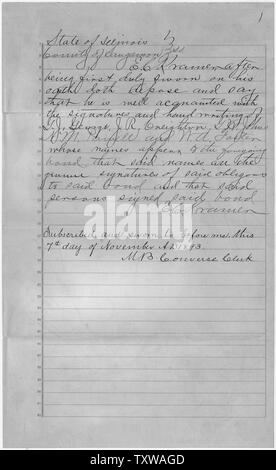 1
State of Illinois }
County of Sangamon } ss
E.C. Kramer after
being first duly sworn on his
oath doth depose and say
that he is well acquainted with
the signatures and handwriting of
J. R. Creighton,
and
whose names appear to the foregoing
bond, that said names are the
genuine signatures of said obligors
to said bond and that said
persons signed said bond
E.C. Kramer
Subscribed and sworn to before me, this
7th day of November A.D. 1893.
M.B. Converse Clerk
alamy
TXWAGD